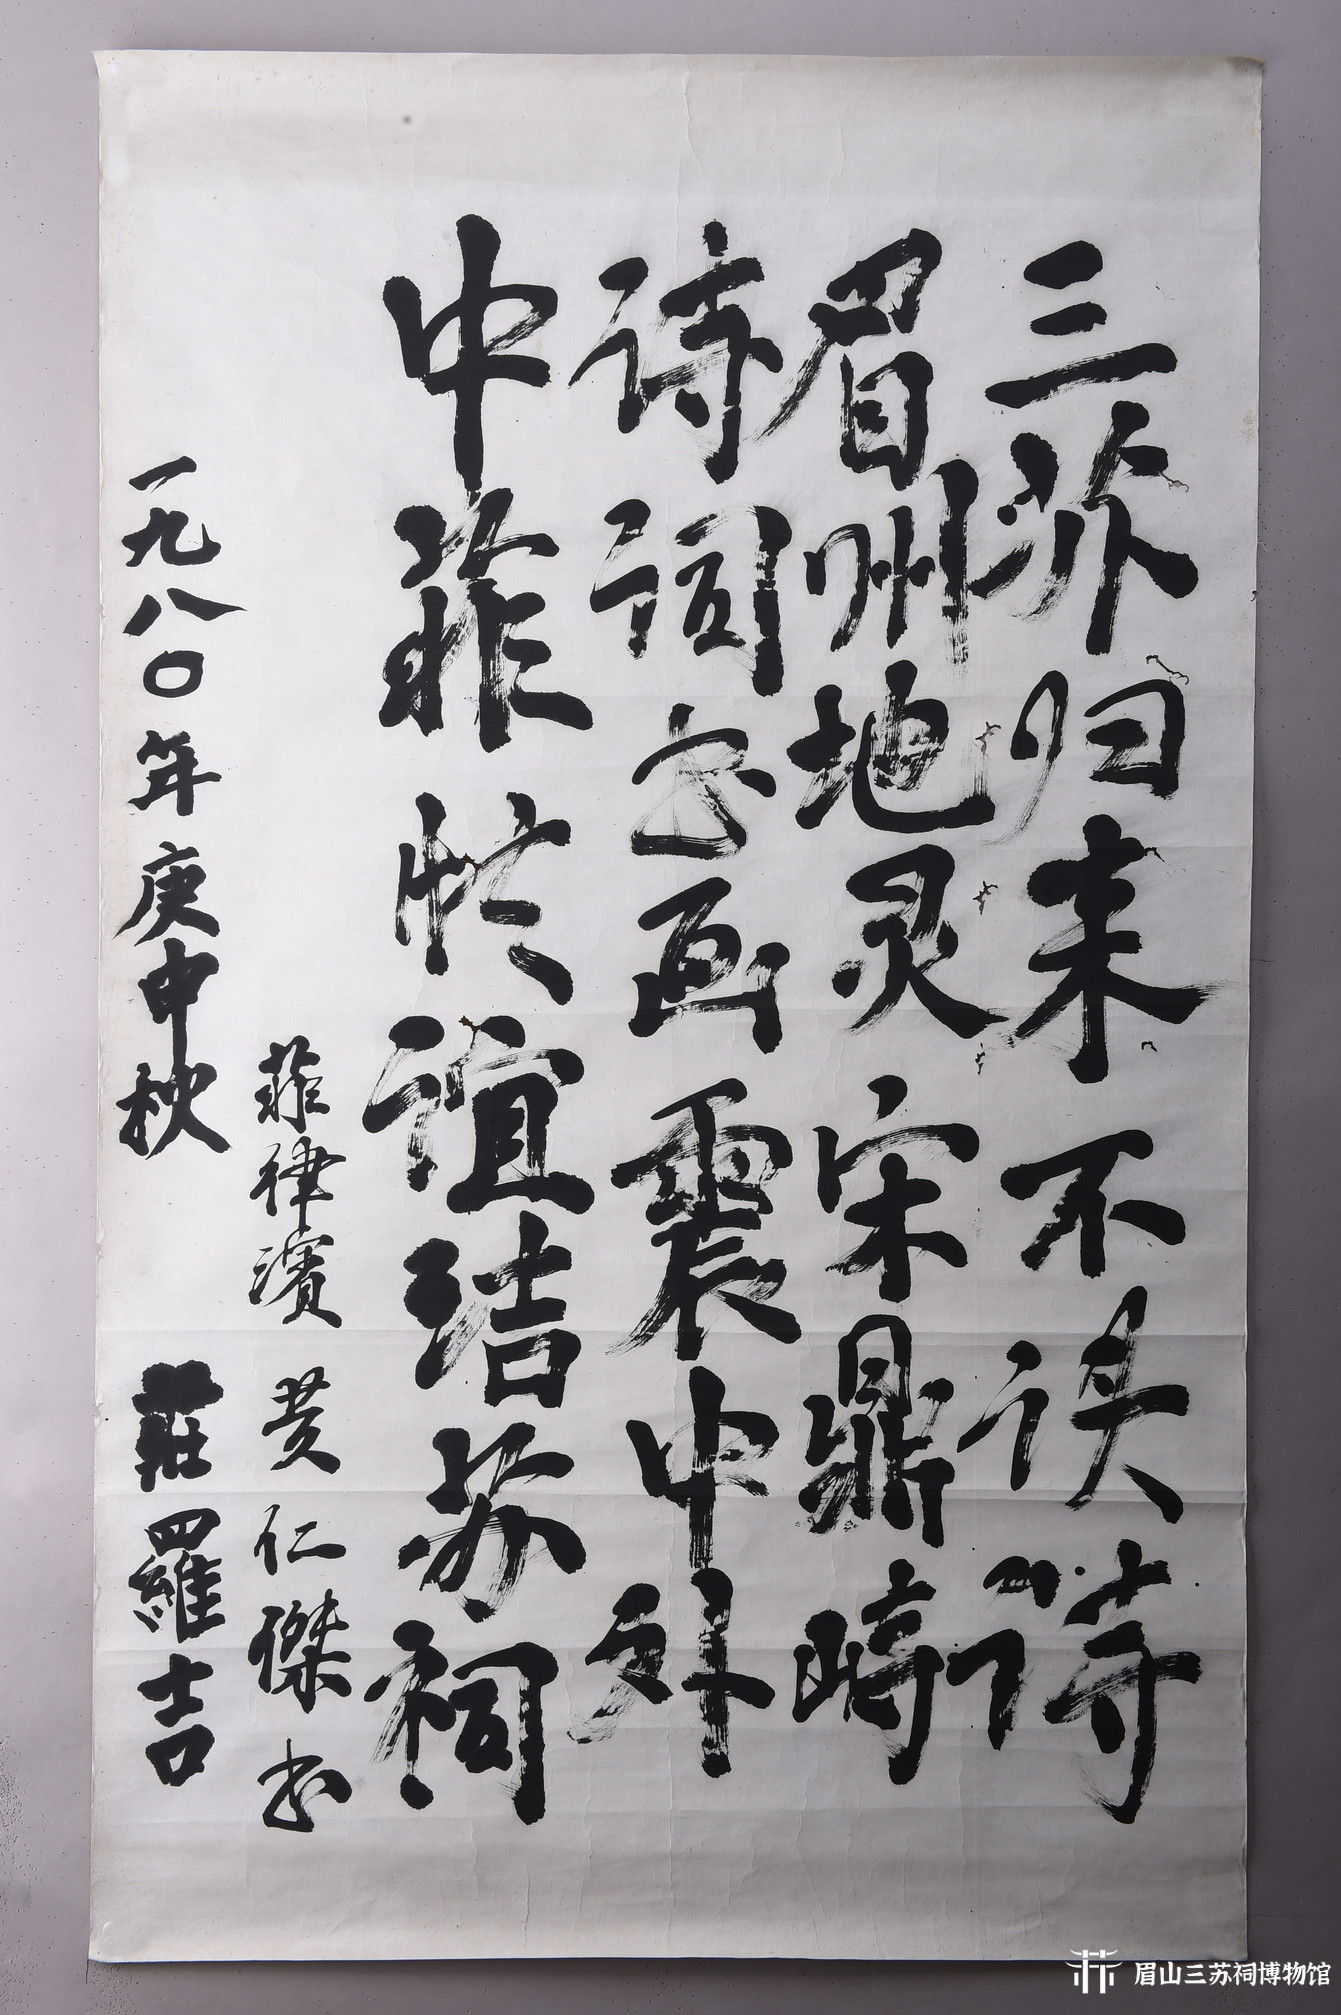 三苏归来不误诗
眉州地灵宋鼎峙
诗词书画震中外
中菲忙谊结苏祠
菲律濱 黄仁傑书
一九八〇年庚申秋 莊羅吉
眉山三苏祠博物馆